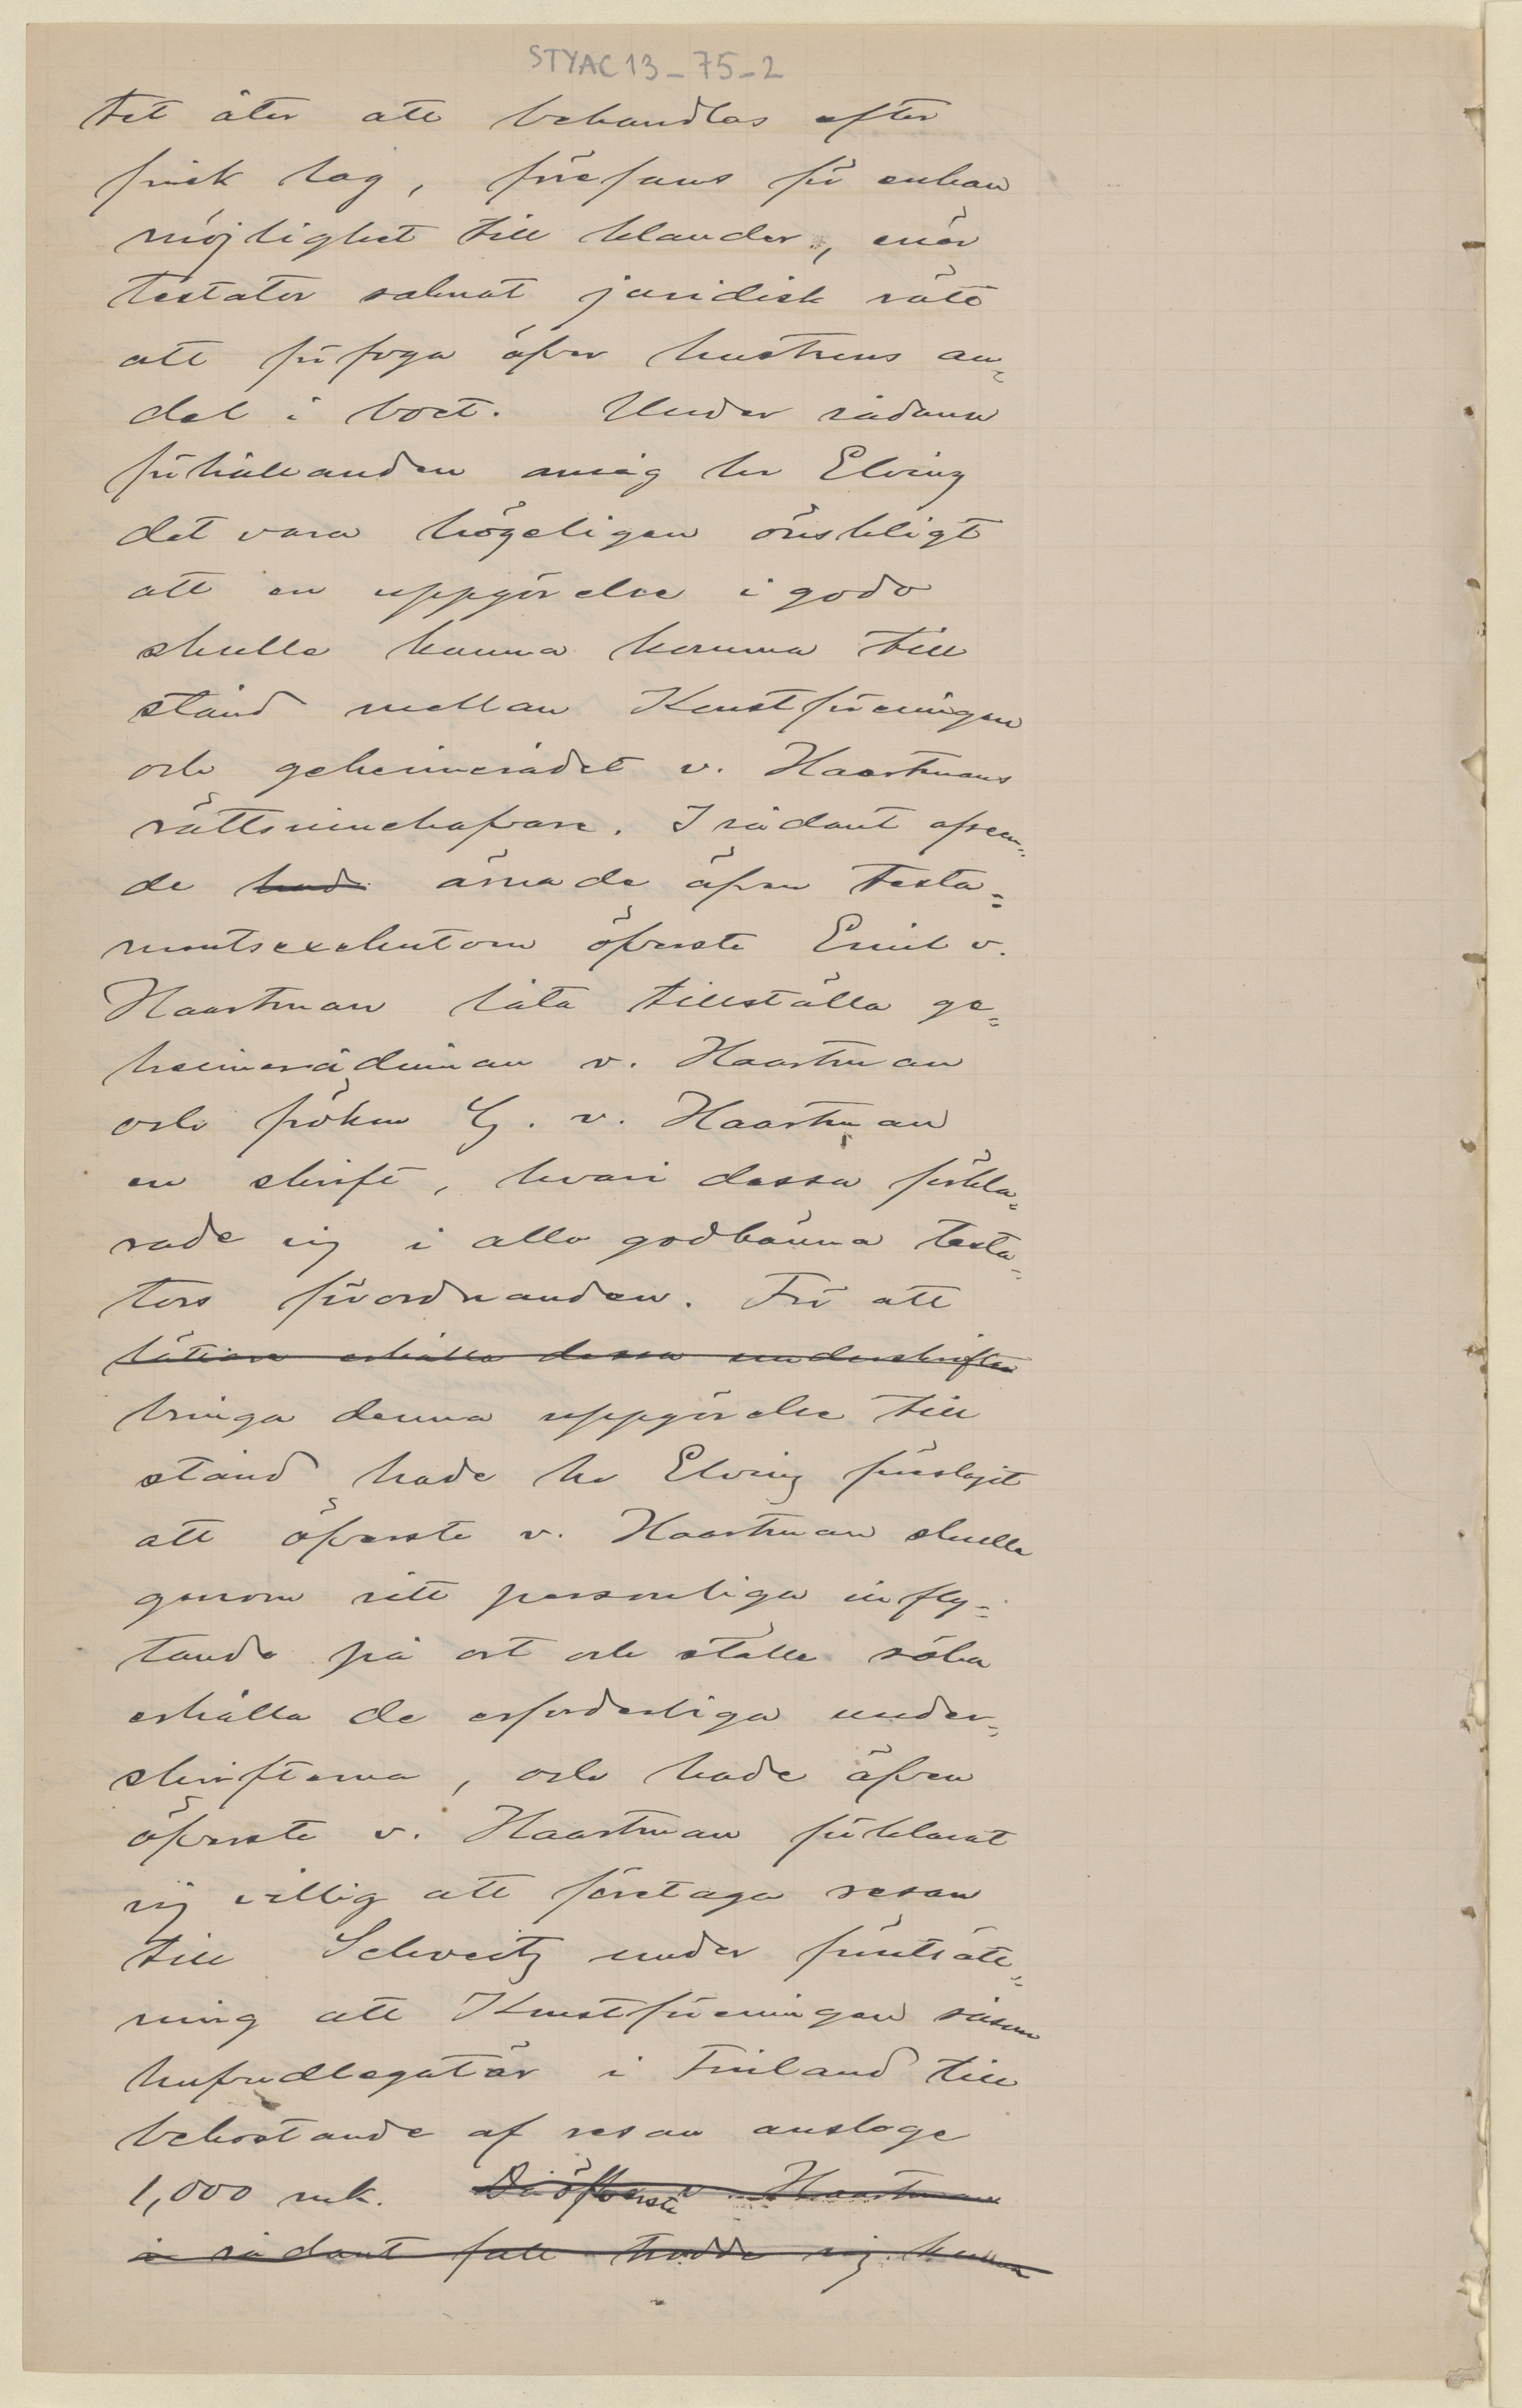 STYAC13-75-2
tet åter att behandlas efter
finsk lag, förefans för enkan
möjlighet till klander, enär
testator saknat juridisk rätt
att förfoga öfver hustruns an=
del i boet. Under sådana
förhållanden ansåg hr Elving
det vara högeligen önskligt
att en uppgörelse i godo
skulle kunna komma till
stånd mellan Konstföreningen
och geheimerådet v. Haartmans
rättsinnehafvare. I sådant afseen=
de hade ärnade äfven testa=
mentsexekutorn öfverste Emil v.
Haartman låta tillställa ge=
heimerådinnan v. Haartman
och fröken G. v. Haartman
en skrift, hvari dessa förkla=
rade sig i allo godkänna testa=
tors förordnanden. För att
lättare erhålla dessa underskrifter
bringa denna uppgörelse till
stånd hade hr Elving föreslagit
att öfverste v. Haartman skulle
genom sitt personliga infly=
tande på ort och ställe söka
erhålla de erforderliga under=
skrifterna, och hade äfven
öfverste v. Haartman förklarat
sig villig att företaga resan
till Schweitz under förutsätt=
ning att Konstföreningen såsom
hufvudlegatär i Finland till
bekostande af resan ansloge
1,000 mk. Då öfverste v. Haartman
i sådant fall trodde sig kunna